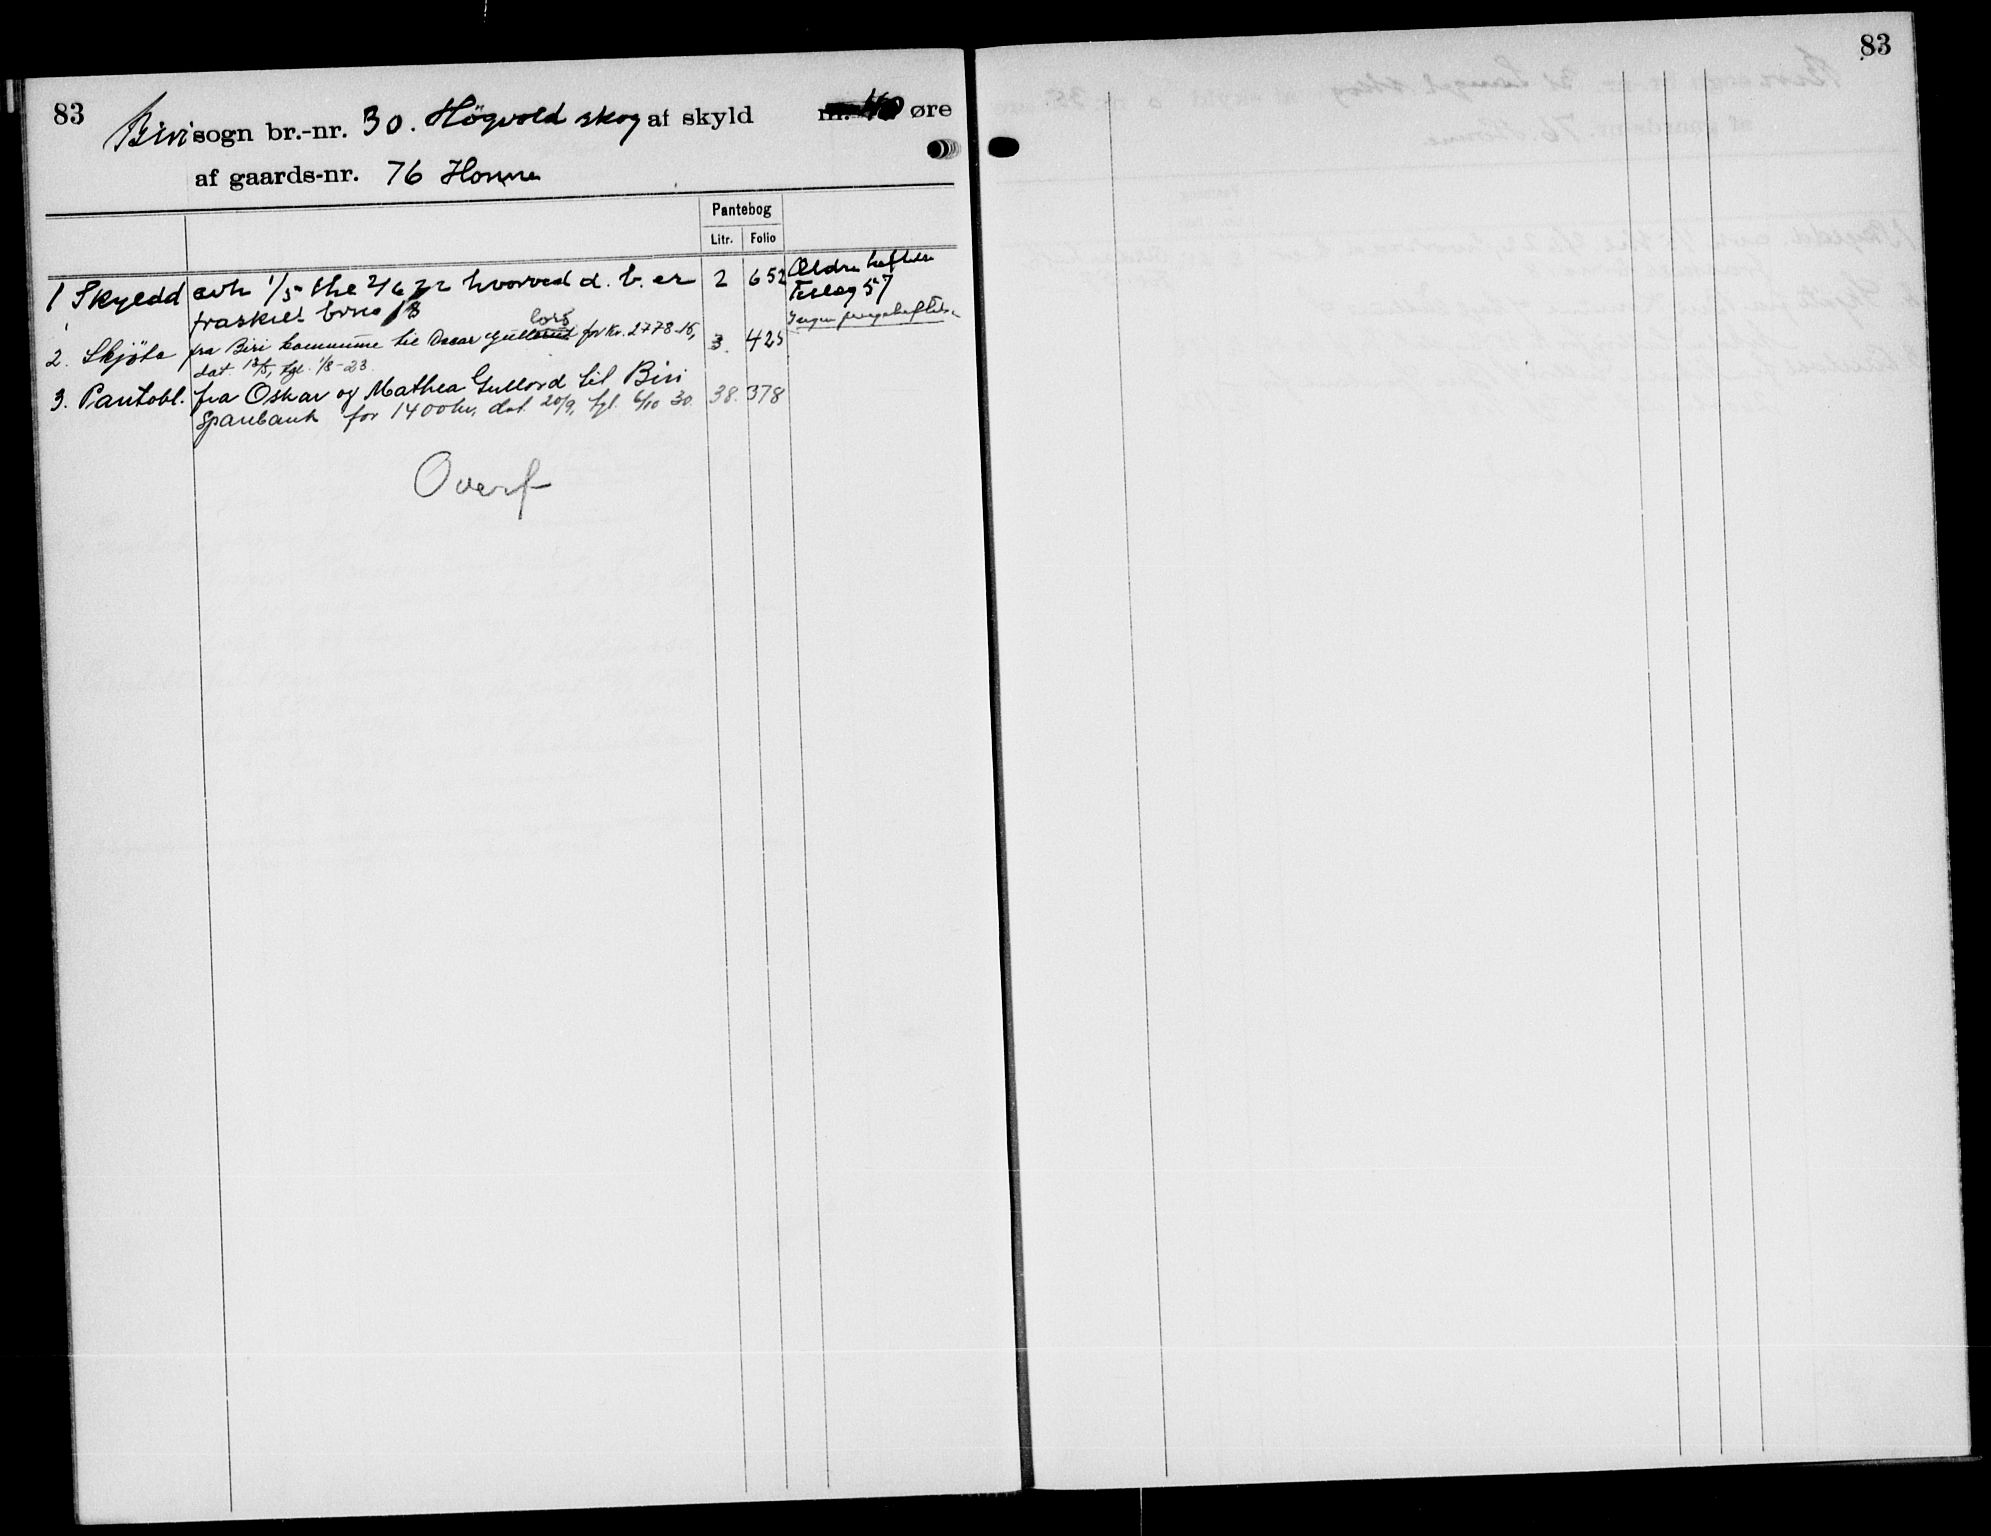 83
Biri sogn br.-nr. 30. Högvold skog af skyld m. 40 øre
af gaards-nr. 76 Honne
Pantebog
Litr. Folio
1 Skyldd avh 1/5 thl 2/6 22 hvorved d. b. er 2 652 Ældre heftelse
fraskilt brno 18 Teslag 57
Ingen pengeheftelse
lord
2. Skjöte fra Biri kommune til Oscar Gullerud for kr. 2778.15, 3. 425
dat 12/5, tgl. 1/8-23.
3. Pantobl. fra Oskar og Mathea Gullord til Biri 38. 378
Sparebank for 1400 kr, dat 20/9, tgl. 6/10 30.
Overf
83